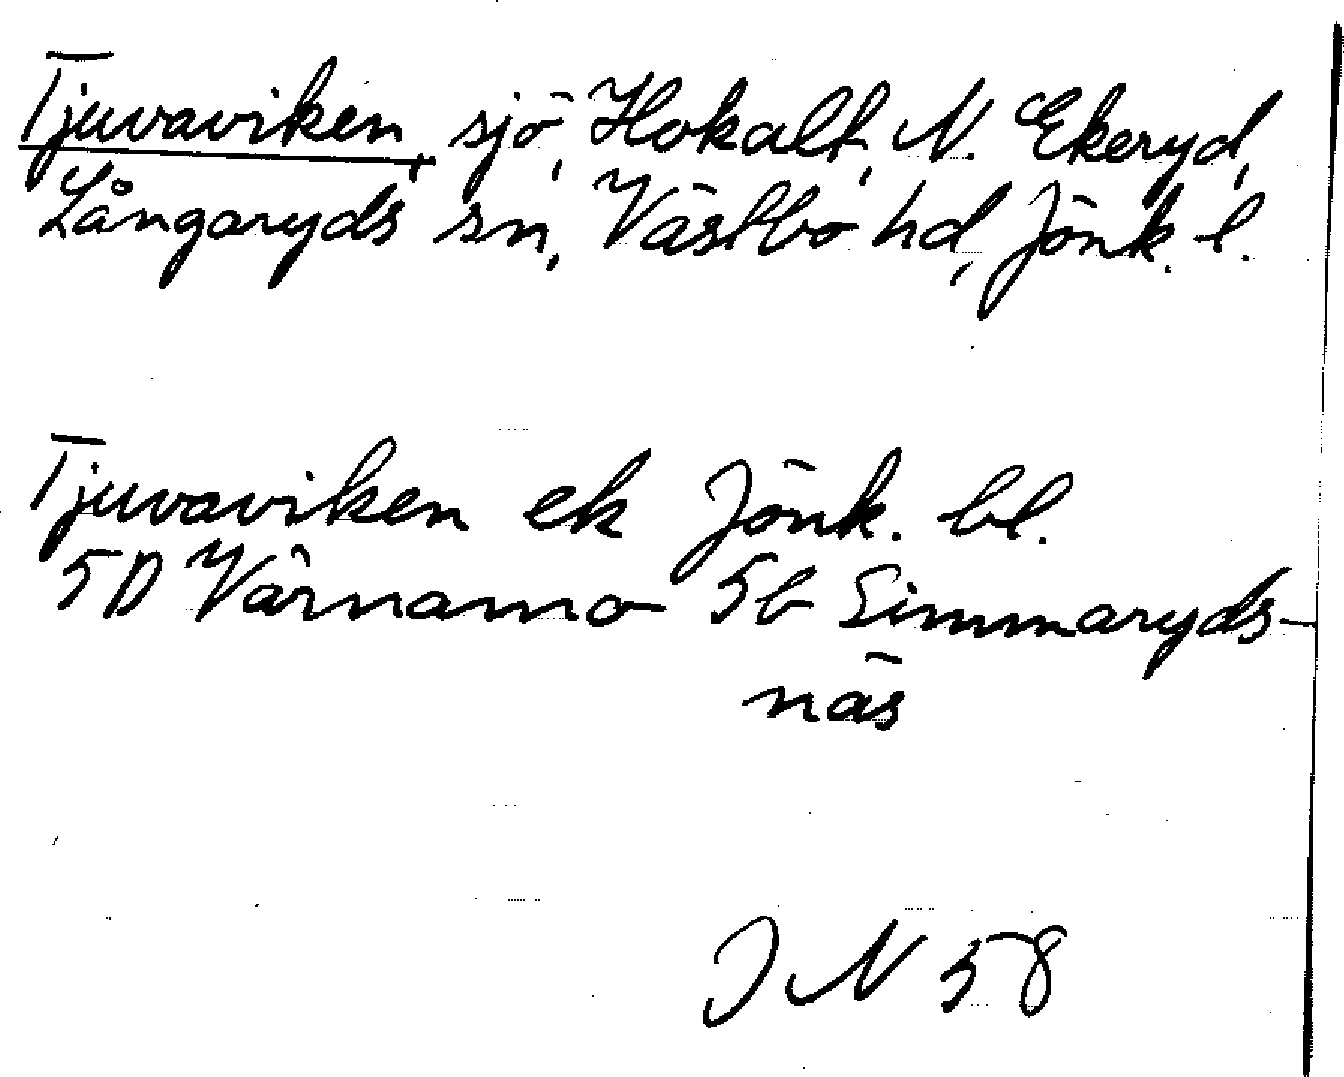 Tjuvaviken, sjö, Hokalt, N. Ekeryd,
Långaryds sn, Västbo hd, Jönk. l.
Tjuvaviken ek Jönk. bl.
5D Värnamo 5b Simmaryds-
näs
J N 58